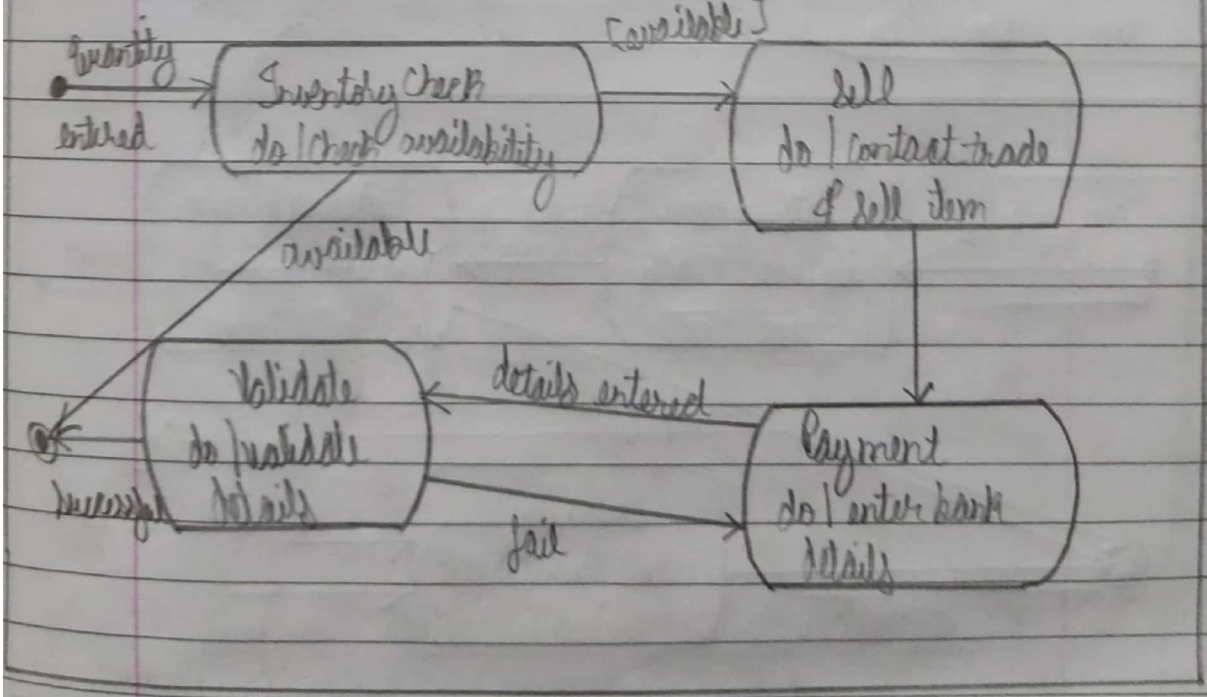 [available]
Quantity
entered
Inventory Check
do / Check availability
Sell
do / contact trade
& sell item
available
Validate
do / validate
details
details entered
Payment
do / enter bank
details
Successful
fail